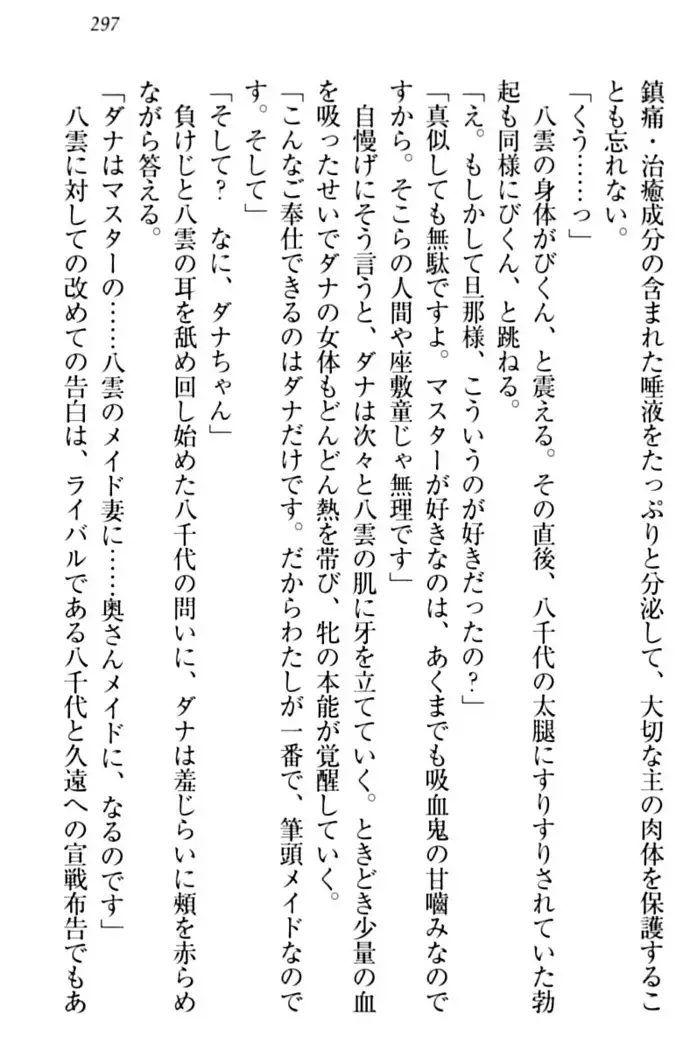 297
鎮痛・治癒成分の含まれた唾液をたっぷりと分泌して、大切な主の肉体を保護するこ
とも忘れない。
「くう……っ」
八雲の身体がびくん、と震える。その直後、八千代の太腿にすりすりされていた勃
起も同様にびくん、と跳ねる。
「え。もしかして旦那様、こういうのが好きだったの？」
「真似しても無駄ですよ。マスターが好きなのは、あくまでも吸血鬼の甘噛みなので
すから。そこらの人間や座敷童じゃ無理です」
自慢げにそう言うと、ダナは次々と八雲の肌に牙を立てていく。ときどき少量の血
を吸ったせいでダナの女体もどんどん熱を帯び、牝の本能が覚醒していく。
「こんなご奉仕できるのはダナだけです。だからわたしが一番で、筆頭メイドなので
す。そして」
「そして？　なに、ダナちゃん」
負けじと八雲の耳を舐め回し始めた八千代の問いに、ダナは羞じらいに頬を赤らめ
ながら答える。
「ダナはマスターの……八雲のメイド妻に……奥さんメイドに、なるのです」
八雲に対しての改めての告白は、ライバルである八千代と久遠への宣戦布告でもあ